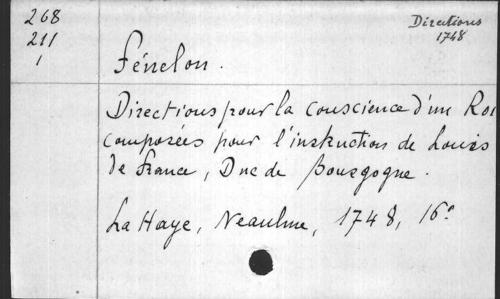 268
211
1
Directions
1748
Fénelon.
Directions pour la conscience d'un Roi
composées pour l'instruction de Louis
de France, Duc de Bourgogne.
La Haye, Neaulme, 1748, 16°